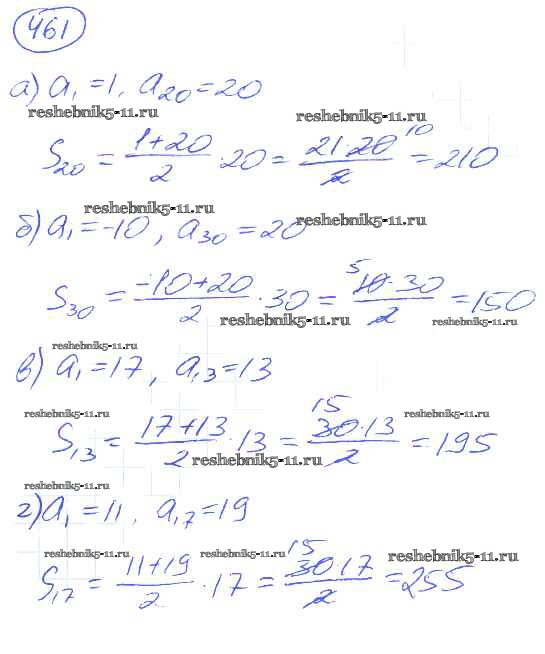 461
а) a₁ = 1, a₂₀ = 20
reshebnik5-11.ru reshebnik5-11.ru
S₂₀ = (1+20)/2 · 20 = (21·20)/2 10 = 210
reshebnik5-11.ru reshebnik5-11.ru
б) a₁ = -10, a₃₀ = 20
S₃₀ = (-10+20)/2 · 30 = 5 (10·30)/2 = 150
reshebnik5-11.ru reshebnik5-11.ru
reshebnik5-11.ru
в) a₁ = 17, a₁₃ = 13
reshebnik5-11.ru reshebnik5-11.ru
S₁₃ = (17+13)/2 · 13 = 15 (30·13)/2 = 195
reshebnik5-11.ru
reshebnik5-11.ru
г) a₁ = 11, a₁₇ = 19
reshebnik5-11.ru reshebnik5-11.ru reshebnik5-11.ru
S₁₇ = (11+19)/2 · 17 = 15 (30·17)/2 = 255